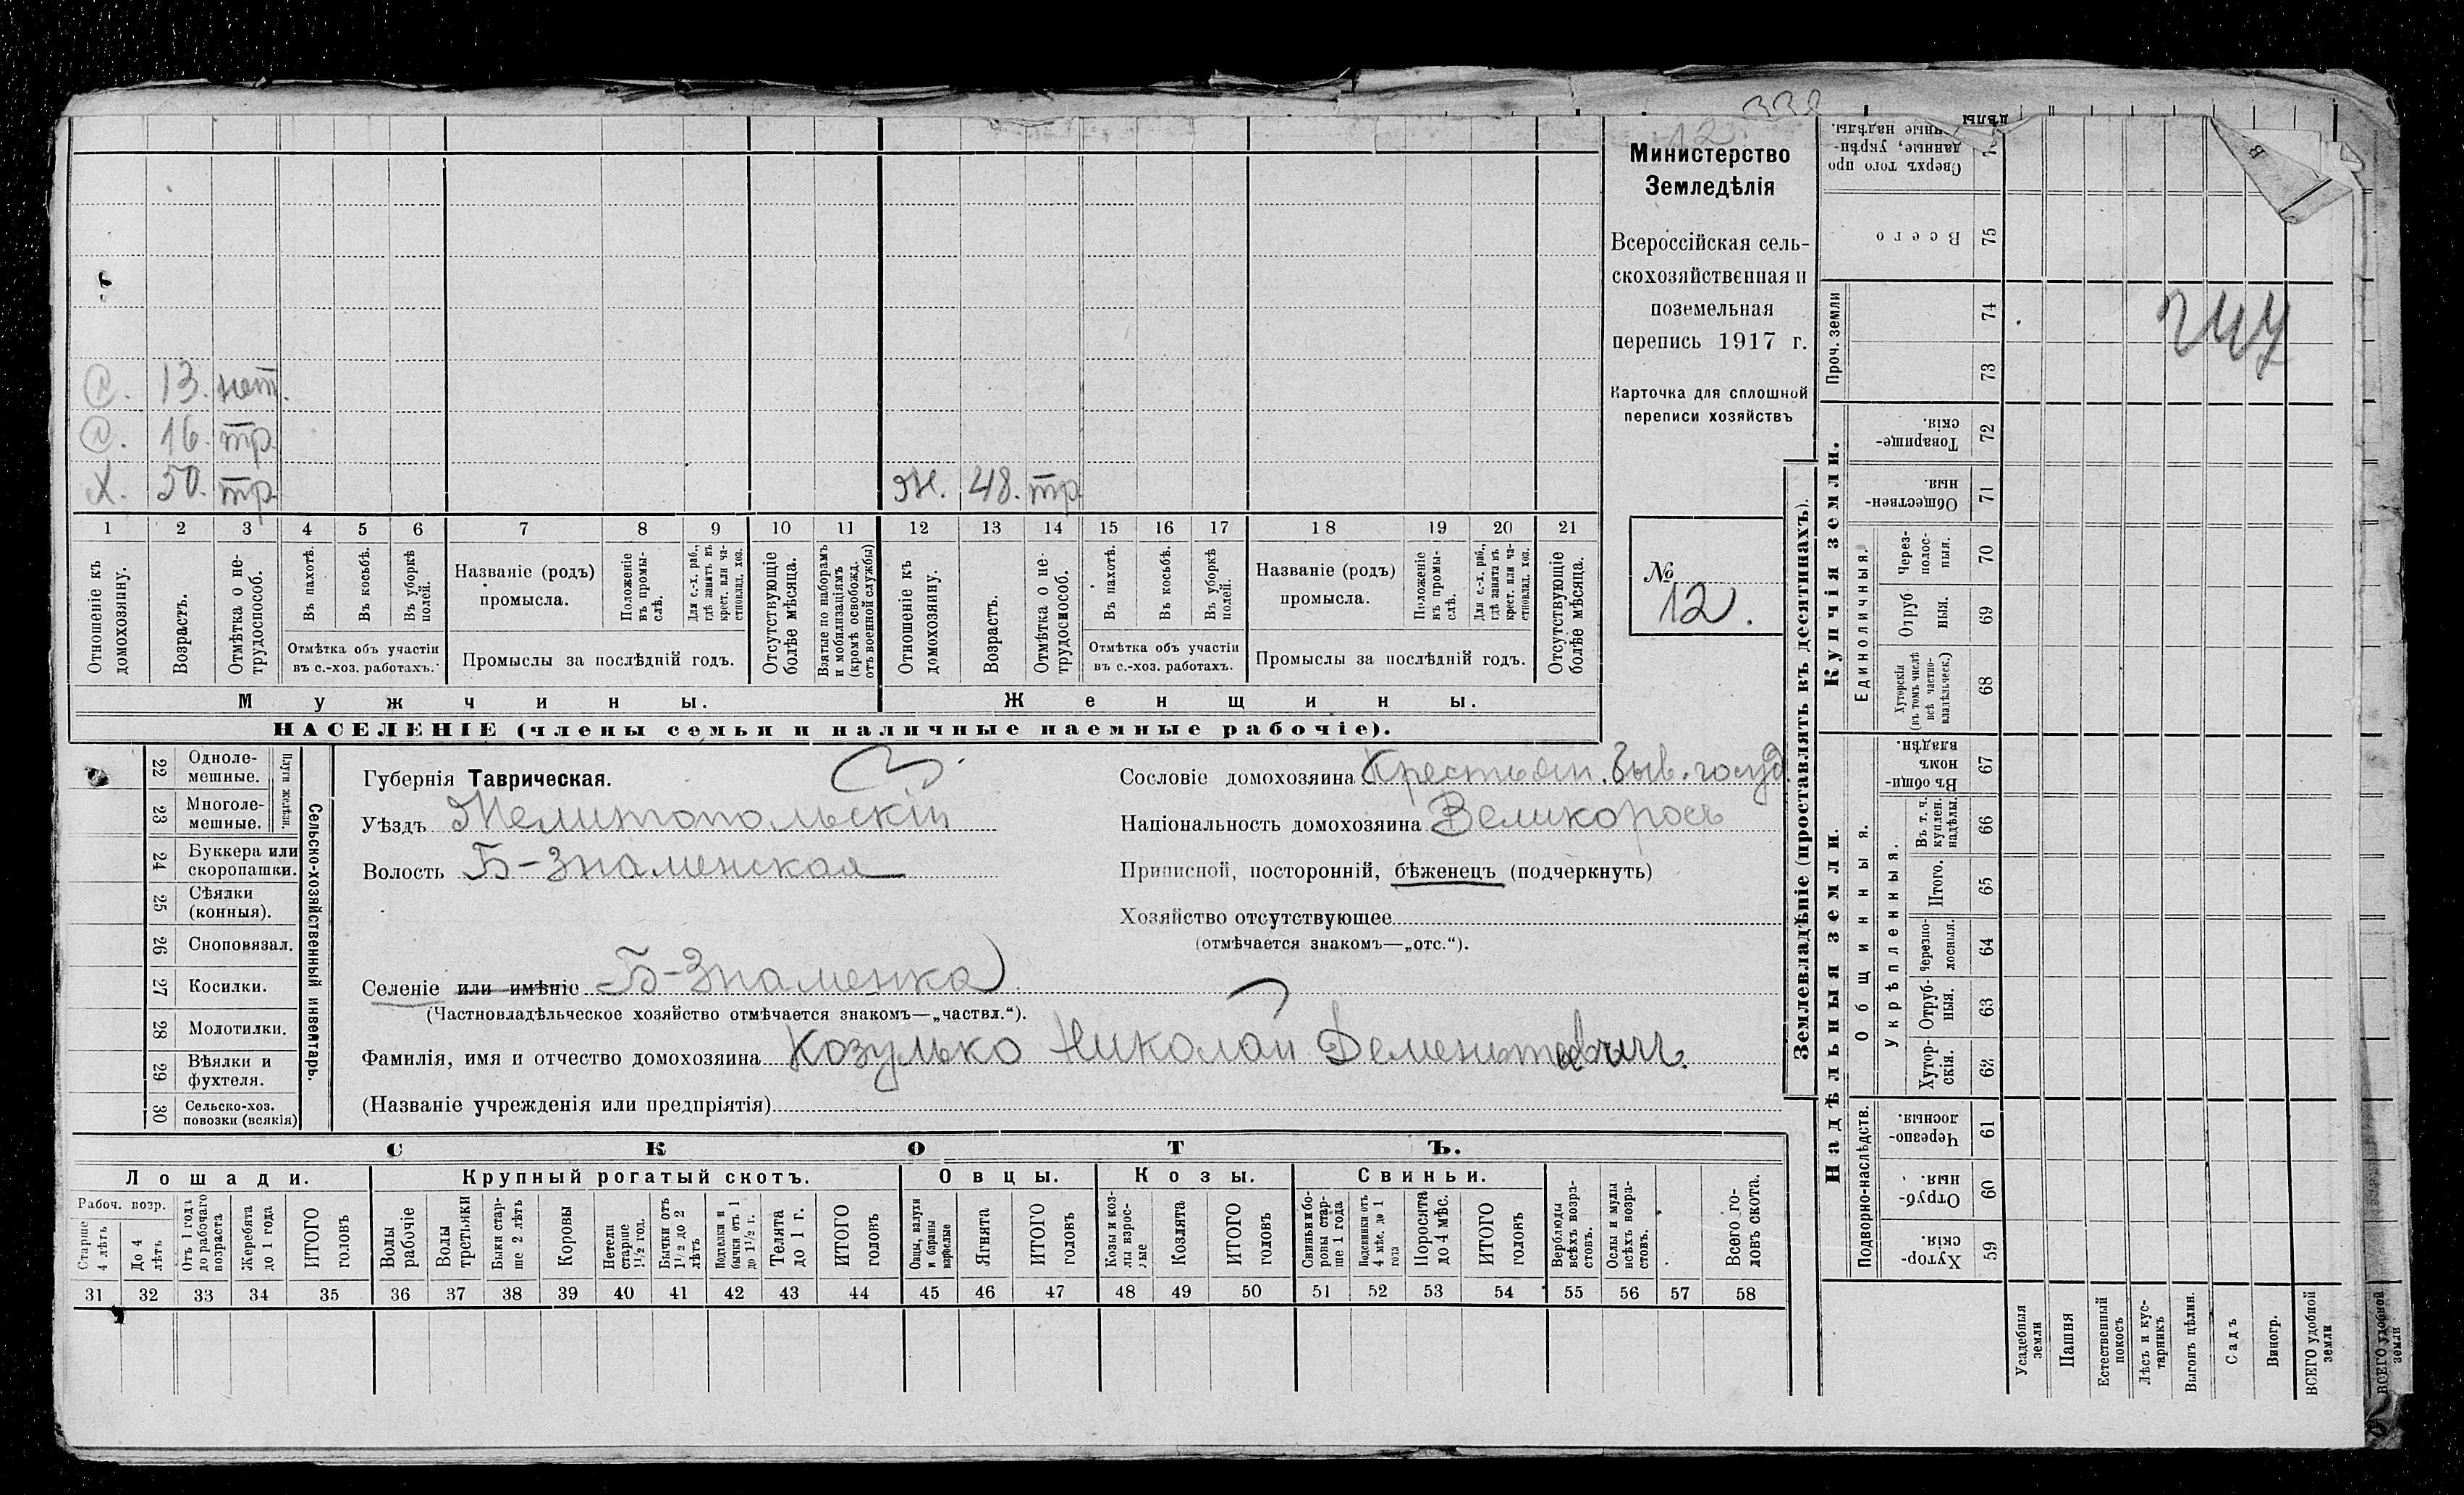 332
12.
Министерство
Земледѣлія
Всероссійская сель-
скохозяйственная и
поземельная
перепись 1917 г.
Карточка для сплошной
переписи хозяйствъ
№
12.
13. нет.
16. тр.
Х. 50. тр. Ж. 48. тр.
1 2 3 4 5 6 7 8 9 10 11 12 13 14 15 16 17 18 19 20 21
Отношеніе къ домохозяину.
Возрастъ.
Отмѣтка о не-трудоспособ.
Въ пахотѣ.
Въ косьбѣ.
Въ уборкѣ полей.
Отмѣтка объ участіи
въ с.-хоз. работахъ.
Названіе (родъ)
промысла.
Положеніе въ промы-слѣ.
Для с.-х. раб., гдѣ занятъ въ крест. или ча-стновлад. хоз.
Промыслы за послѣдній годъ.
Отсутствующіе болѣе мѣсяца.
Взятые по наборамъ и мобилизаціямъ (кромѣ освобожд. отъ военной службы)
Отношеніе къ домохозяину.
Возрастъ.
Отмѣтка о не-трудоспособ.
Въ пахотѣ.
Въ косьбѣ.
Въ уборкѣ полей.
Отмѣтка объ участіи
въ с.-хоз. работахъ.
Названіе (родъ)
промысла.
Положеніе въ промы-слѣ.
Для с.-х. раб., гдѣ занята въ крест. или ча-стновлад. хоз.
Промыслы за послѣдній годъ.
Отсутствующіе болѣе мѣсяца.
Мужчины.
Женщины.
НАСЕЛЕНІЕ (члены семьи и наличные наемные рабочіе).
22 Одноле-мешные.
23 Многоле-мешные.
Плуги желѣзн.
24 Буккера или скоропашки.
25 Сѣялки (конныя).
26 Сноповязал.
27 Косилки.
28 Молотилки.
29 Вѣялки и фухтеля.
30 Сельско-хоз. повозки (всякія)
Сельско-хозяйственный инвентарь.
Губернія Таврическая.
Уѣздъ Мелитопольскій
Волость Б-Знаменская
Селеніе или имѣніе Б-Знаменка
(Частновладѣльческое хозяйство отмѣчается знакомъ—„частвл.“).
Фамилія, имя и отчество домохозяина Козулько Николай Дементьевичъ.
(Названіе учрежденія или предпріятія)
Сословіе домохозяина Крестьян. быв. госуд.
Національность домохозяина Великороссъ
Приписной, посторонній, бѣженецъ (подчеркнуть)
Хозяйство отсутствующее
(отмѣчается знакомъ—„отс.“).
СКОТЪ.
Лошади.
Крупный рогатый скотъ.
Овцы.
Козы.
Свиньи.
Рабоч. возр.
Старше 4 лѣтъ
До 4 лѣтъ
Отъ 1 года до рабочаго возраста
Жеребята до 1 года
ИТОГО головъ
Волы рабочіе
Волы третьяки
Быки стар-ше 2 лѣтъ
Коровы
Нетели старше 1½ год.
Бычки отъ 1½ до 2 лѣтъ
Подтелки и бычки отъ 1 до 1½ г.
Телята до 1 г.
ИТОГО головъ
Овцы, валухи и бараны взрослые
Ягнята
ИТОГО головъ
Козы и коз-лы взрос-лые
Козлята
ИТОГО головъ
Свиньи и бо-ровы стар-ше 1 года
Подсвинки отъ 4 мѣс. до 1 года
Поросята до 4 мѣс.
ИТОГО головъ
Верблюды всѣхъ возра-стовъ.
Ослы и мулы всѣхъ возра-стовъ.
Всего го-ловъ скота.
31 32 33 34 35 36 37 38 39 40 41 42 43 44 45 46 47 48 49 50 51 52 53 54 55 56 57 58
Землевладѣніе (проставлять въ десятинахъ).
Купчія земли.
Надѣльныя земли.
Сверхъ того про
данные, укрѣп-
нные надѣлы.
75 Всего
Проч. земли
74
73
72 Товарище-скія.
71 Обществен-ныя.
Единоличныя.
70 Через-полос-ныя.
69 Отруб ныя.
68 Хуторскія (въ томъ числѣ всѣ частно-владѣльческ.)
Общинныя.
67 Въ общи-номъ владѣн.
Укрѣпленныя.
66 Въ т. ч. куплен. надѣлы.
65 Итого.
64 Черезпо-лосныя.
63 Отруб-ныя.
62 Хутор-скія.
Подворно-наслѣдств.
61 Черезпо-лосныя.
60 Отруб-ныя.
59 Хутор-скія.
Усадебныя земли
Пашня
Естественный покосъ
Лѣсъ и кус-тарникъ
Выгонъ цѣлин.
Садъ
Виногр.
ВСЕГО удобной земли
ВСЕГО удобной земли